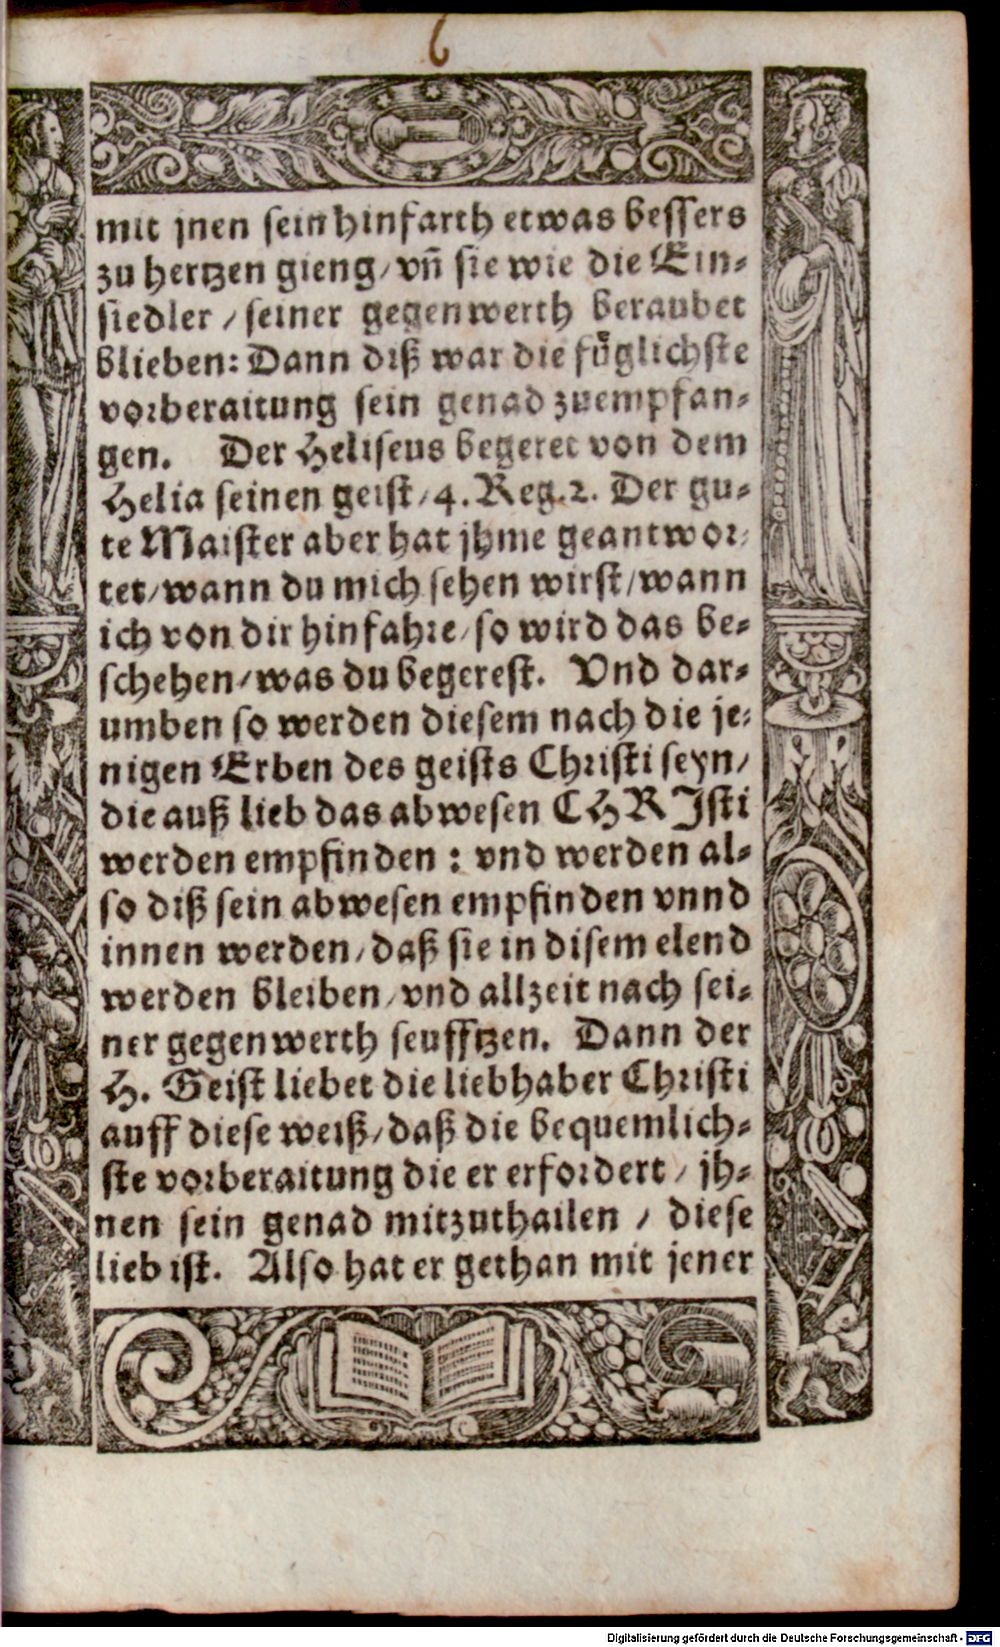 6
mit jnen sein hinfarth etwas bessers
zu hertzen gieng/ vñ sie wie die Ein-
siedler / seiner gegenwerth beraubet
blieben: Dann diß war die fuͤglichste
vorberaitung sein genad zuempfan-
gen. Der Heliseus begeret von dem
Helia seinen geist/ 4. Reg. 2. Der gu-
te Maister aber hat jhme geantwor-
tet/ wann du mich sehen wirst/ wann
ich von dir hinfahre/ so wird das be-
schehen/ was du begerest. Vnd dar-
umben so werden diesem nach die je-
nigen Erben des geists Christi seyn/
die auß lieb das abwesen CHRIsti
werden empfinden : vnd werden al-
so diß sein abwesen empfinden vnnd
innen werden/ daß sie in disem elend
werden bleiben/ vnd allzeit nach sei-
ner gegenwerth seufftzen. Dann der
H. Geist liebet die liebhaber Christi
auff diese weiß/ daß die bequemlich-
ste vorberaitung die er erfordert / jh-
nen sein genad mitzuthailen / diese
lieb ist. Also hat er gethan mit jener
Digitalisierung gefördert durch die Deutsche Forschungsgemeinschaft - DFG